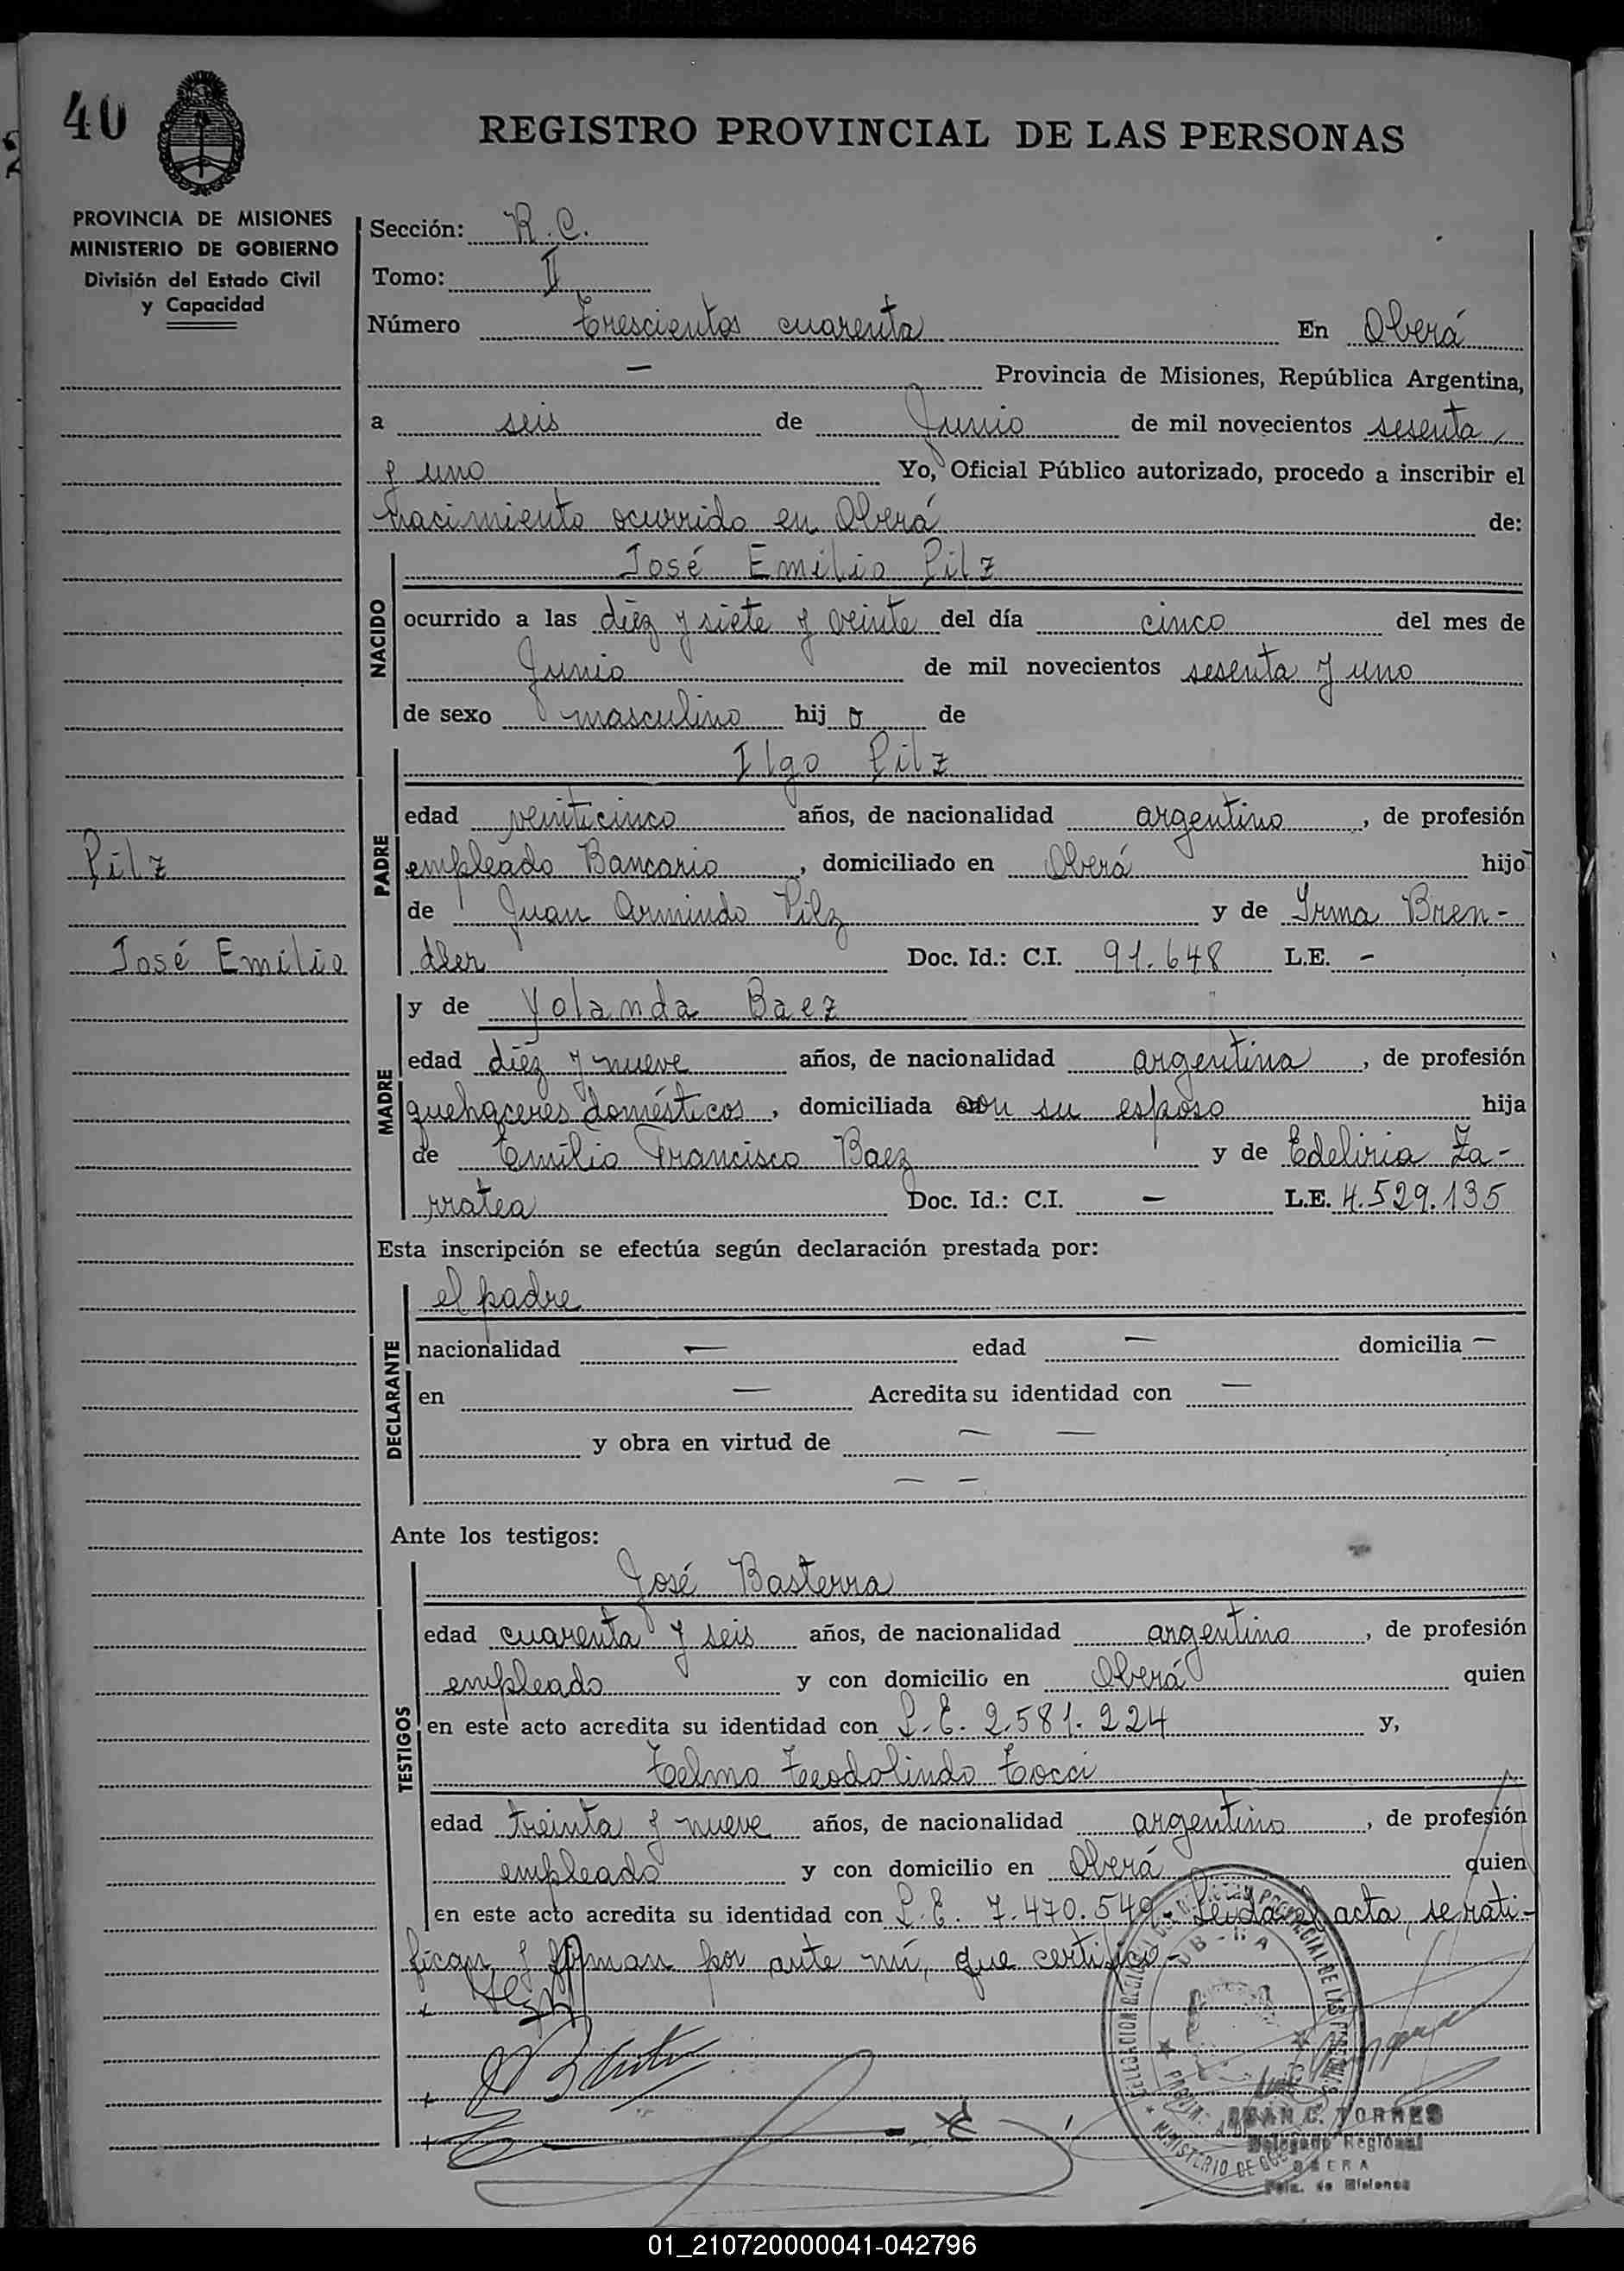 40
REGISTRO PROVINCIAL DE LAS PERSONAS
PROVINCIA DE MISIONES
MINISTERIO DE GOBIERNO
División del Estado Civil
y Capacidad
Sección: R. C.
Tomo: II
Número Trescientos cuarenta En Oberá
— Provincia de Misiones, República Argentina,
a seis de Junio de mil novecientos sesenta
y uno Yo, Oficial Público autorizado, procedo a inscribir el
nacimiento ocurrido en Oberá de:
NACIDO
José Emilio Pilz
ocurrido a las diez y siete y veinte del día cinco del mes de
Junio de mil novecientos sesenta y uno
de sexo masculino hij o de
PADRE
Ilgo Pilz
edad veinticinco años, de nacionalidad argentino, de profesión
empleado Bancario, domiciliado en Oberá hijo
de Juan Armindo Pilz y de Irma Bren-
dler Doc. Id.: C.I. 91.648 L.E. -
Pilz
José Emilio
MADRE
y de Yolanda Baez
edad diez y nueve años, de nacionalidad argentina, de profesión
quehaceres domésticos, domiciliada con su esposo hija
de Emilio Francisco Baez y de Edeliria Za-
rratea Doc. Id.: C.I. — L.E. 4.529.135
Esta inscripción se efectúa según declaración prestada por:
DECLARANTE
el padre
nacionalidad — edad — domicilia —
en — Acredita su identidad con —
y obra en virtud de — —
— —
Ante los testigos:
TESTIGOS
José Basterra
edad cuarenta y seis años, de nacionalidad argentino, de profesión
empleado y con domicilio en Oberá quien
en este acto acredita su identidad con L.E. 2.581.224 y,
Telmo Teodolindo Tocci
edad treinta y nueve años, de nacionalidad argentino, de profesión
empleado y con domicilio en Oberá quien
en este acto acredita su identidad con L.E. 7.470.549- Leída el acta, se rati-
fican y firman por ante mí, que certifico-
JUAN C. TORRES
Delegado Regional
OBERA
Pcia. de Misiones
01_210720000041-042796